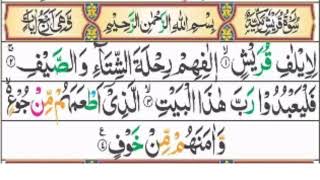 سُوْرَةُ قُرَيْشٍ مَّكِّيَّةٌ بِسْمِ اللهِ الرَّحْمٰنِ الرَّحِيْمِ وَّهِيَ اَرْبَعُ اٰيَاتٍ
لِاِيْلٰفِ قُرَيْشٍ ۙ﴿۱﴾ اٖلٰفِهِمْ رِحْلَةَ الشِّتَآءِ وَالصَّيْفِ ۚ﴿۲﴾
فَلْيَعْبُدُوْا رَبَّ هٰذَا الْبَيْتِ ۙ﴿۳﴾ الَّذِيْٓ اَطْعَمَهُمْ مِّنْ جُوْعٍ ۙ
وَّاٰمَنَهُمْ مِّنْ خَوْفٍ ﴿۴﴾